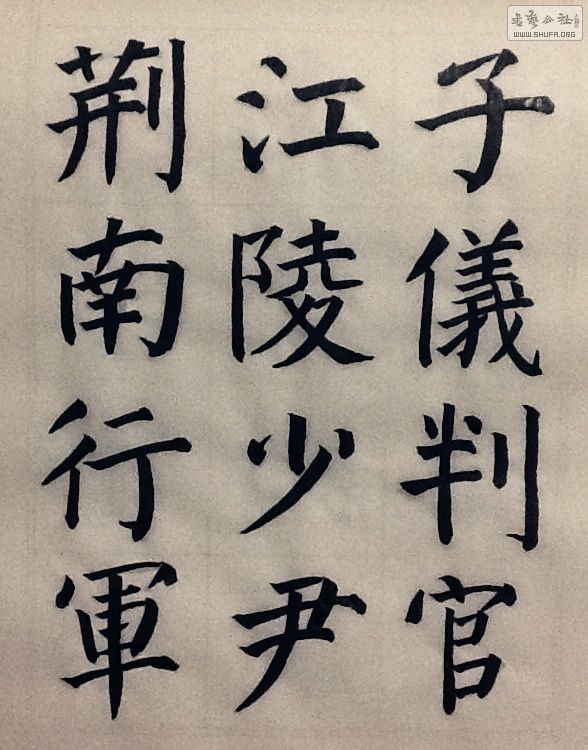 子儀判官
江陵少尹
荆南行軍
WWW.SHUFA.ORG